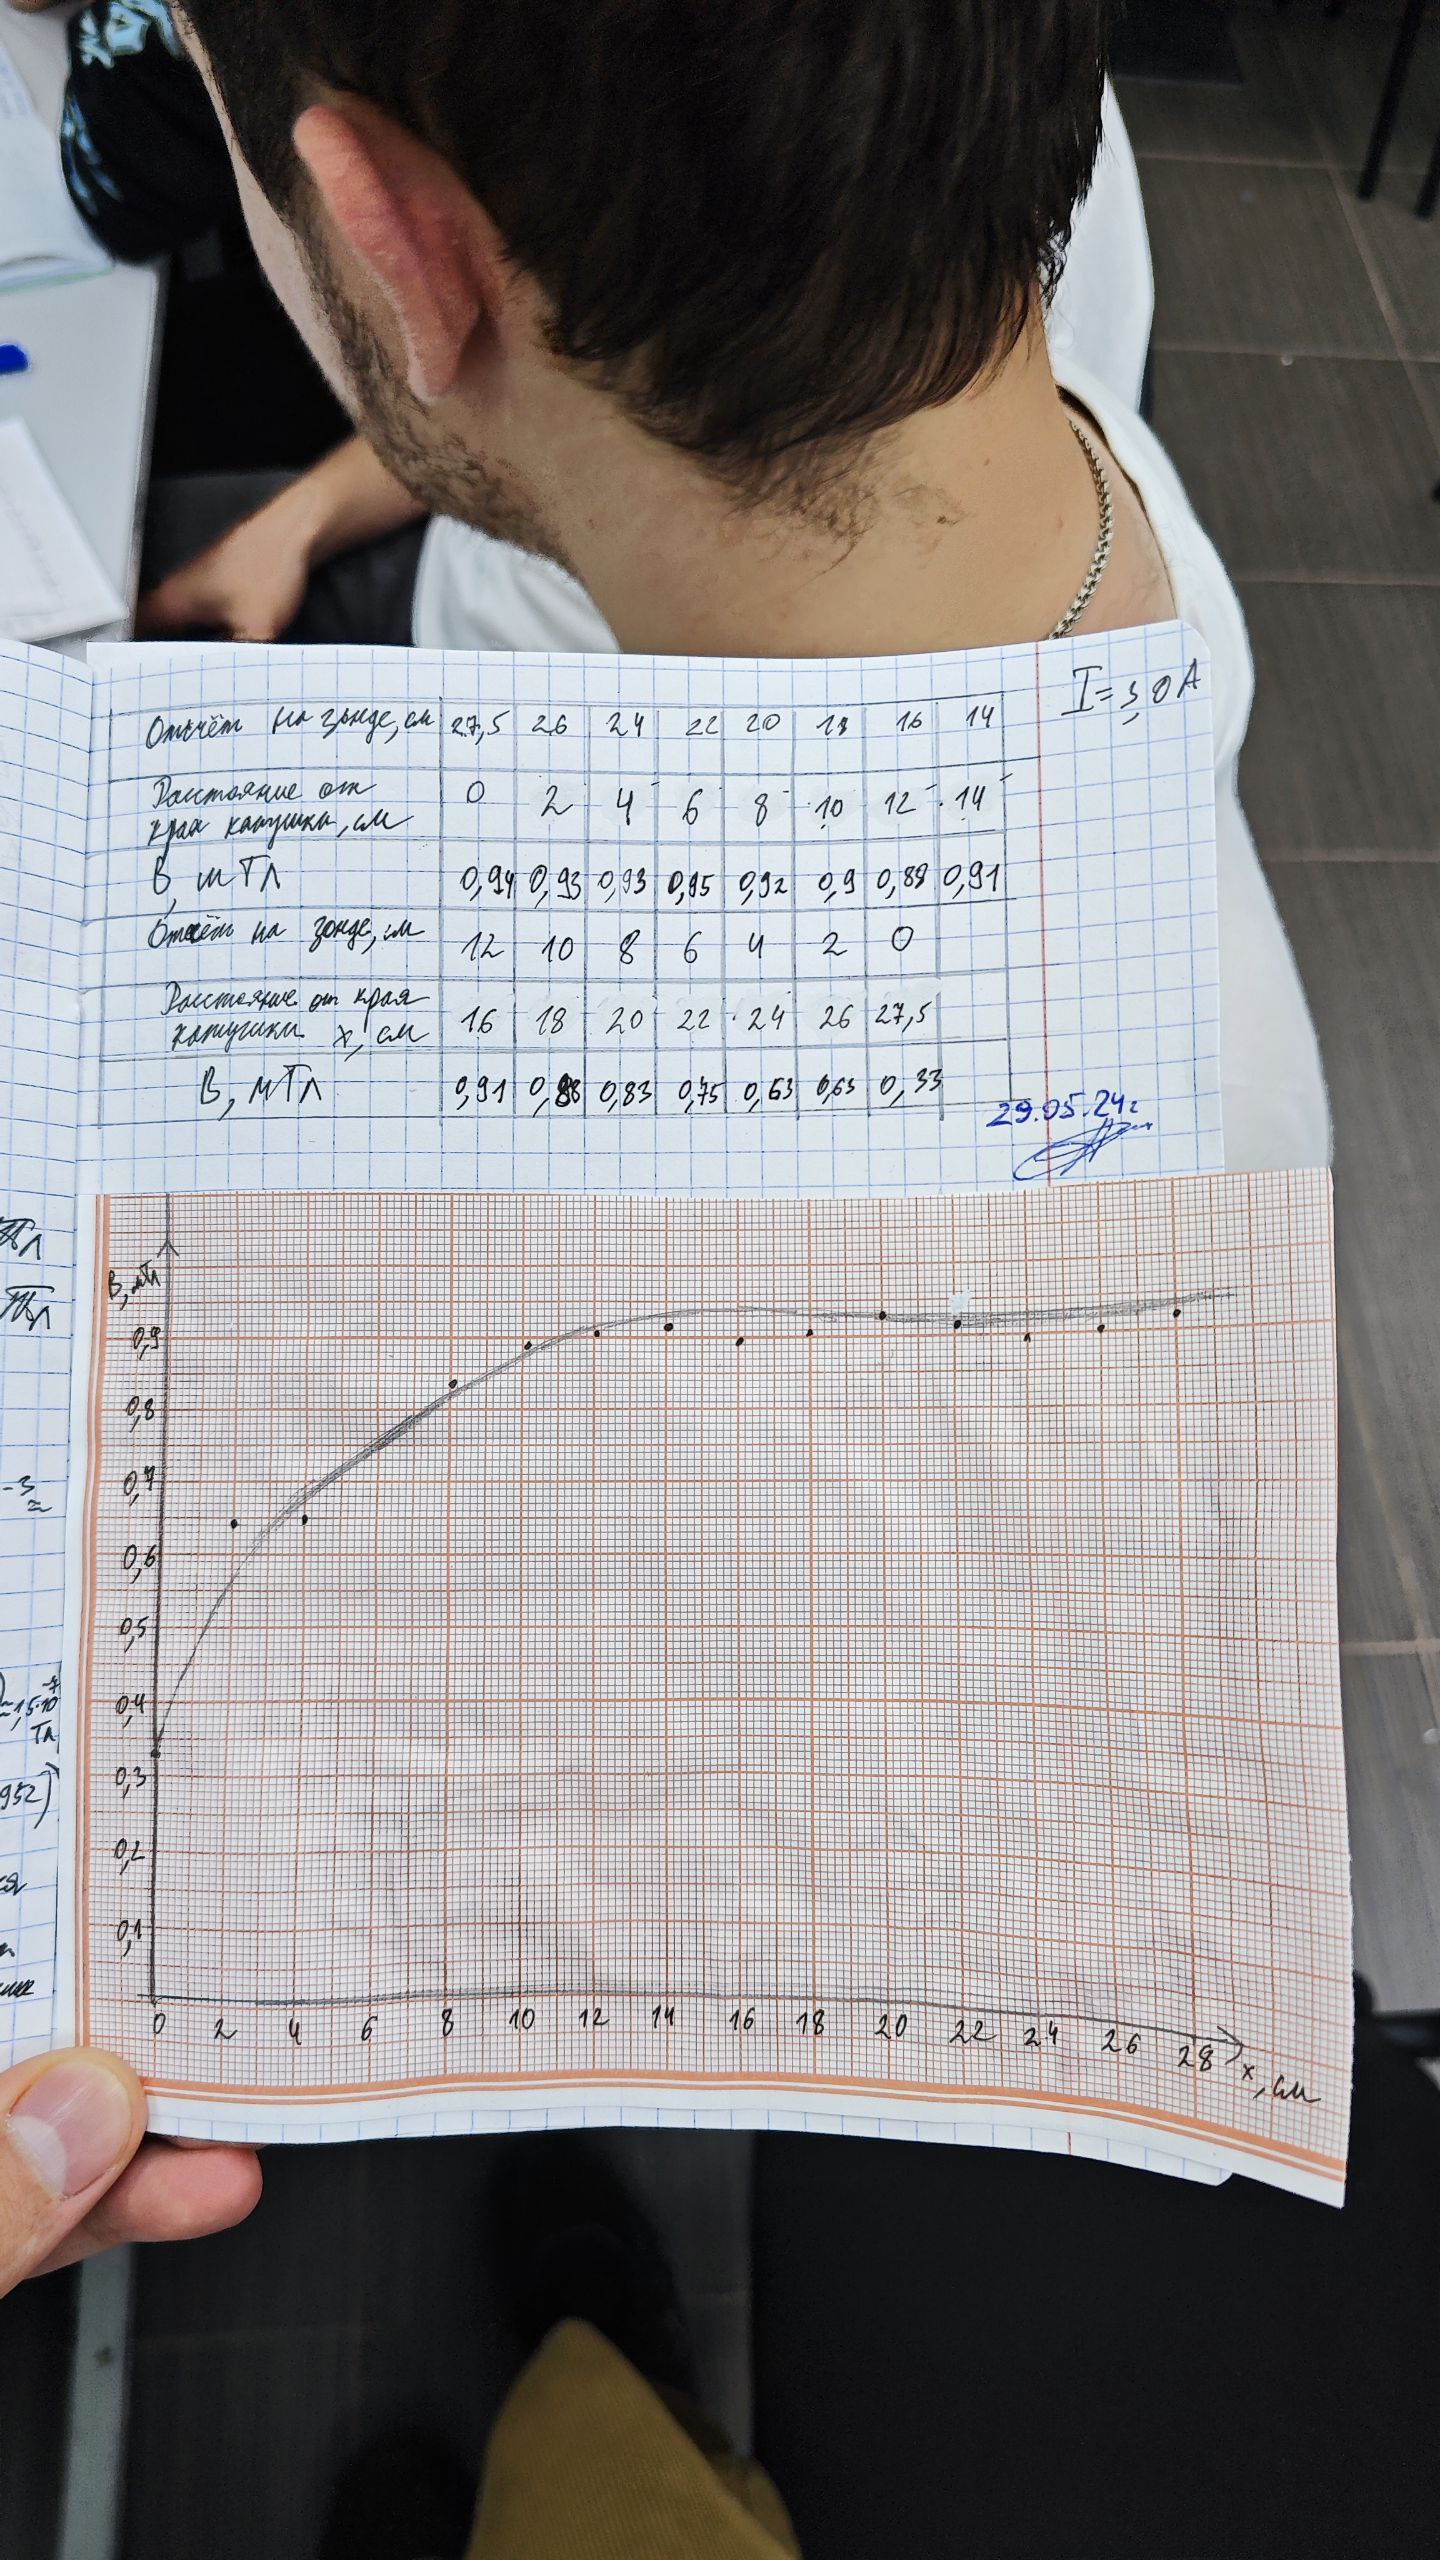 I=3,0A
Отсчёт на зонде, см 27,5 26 24 22 20 18 16 14
Расстояние от
края катушки, см 0 2 4 6 8 10 12 14
В, мТл 0,94 0,93 0,93 0,95 0,92 0,9 0,89 0,91
Отсчёт на зонде, см 12 10 8 6 4 2 0
Расстояние от края
катушки х, см 16 18 20 22 24 26 27,5
В, мТл 0,91 0,88 0,83 0,75 0,63 0,63 0,33
29.05.24г
В, мТл
0,9
0,8
0,7
0,6
0,5
0,4
0,3
0,2
0,1
0 2 4 6 8 10 12 14 16 18 20 22 24 26 28 х, см
Тл
Тл
-3
≈
≈1,5·10⁻⁷
Тл
952)